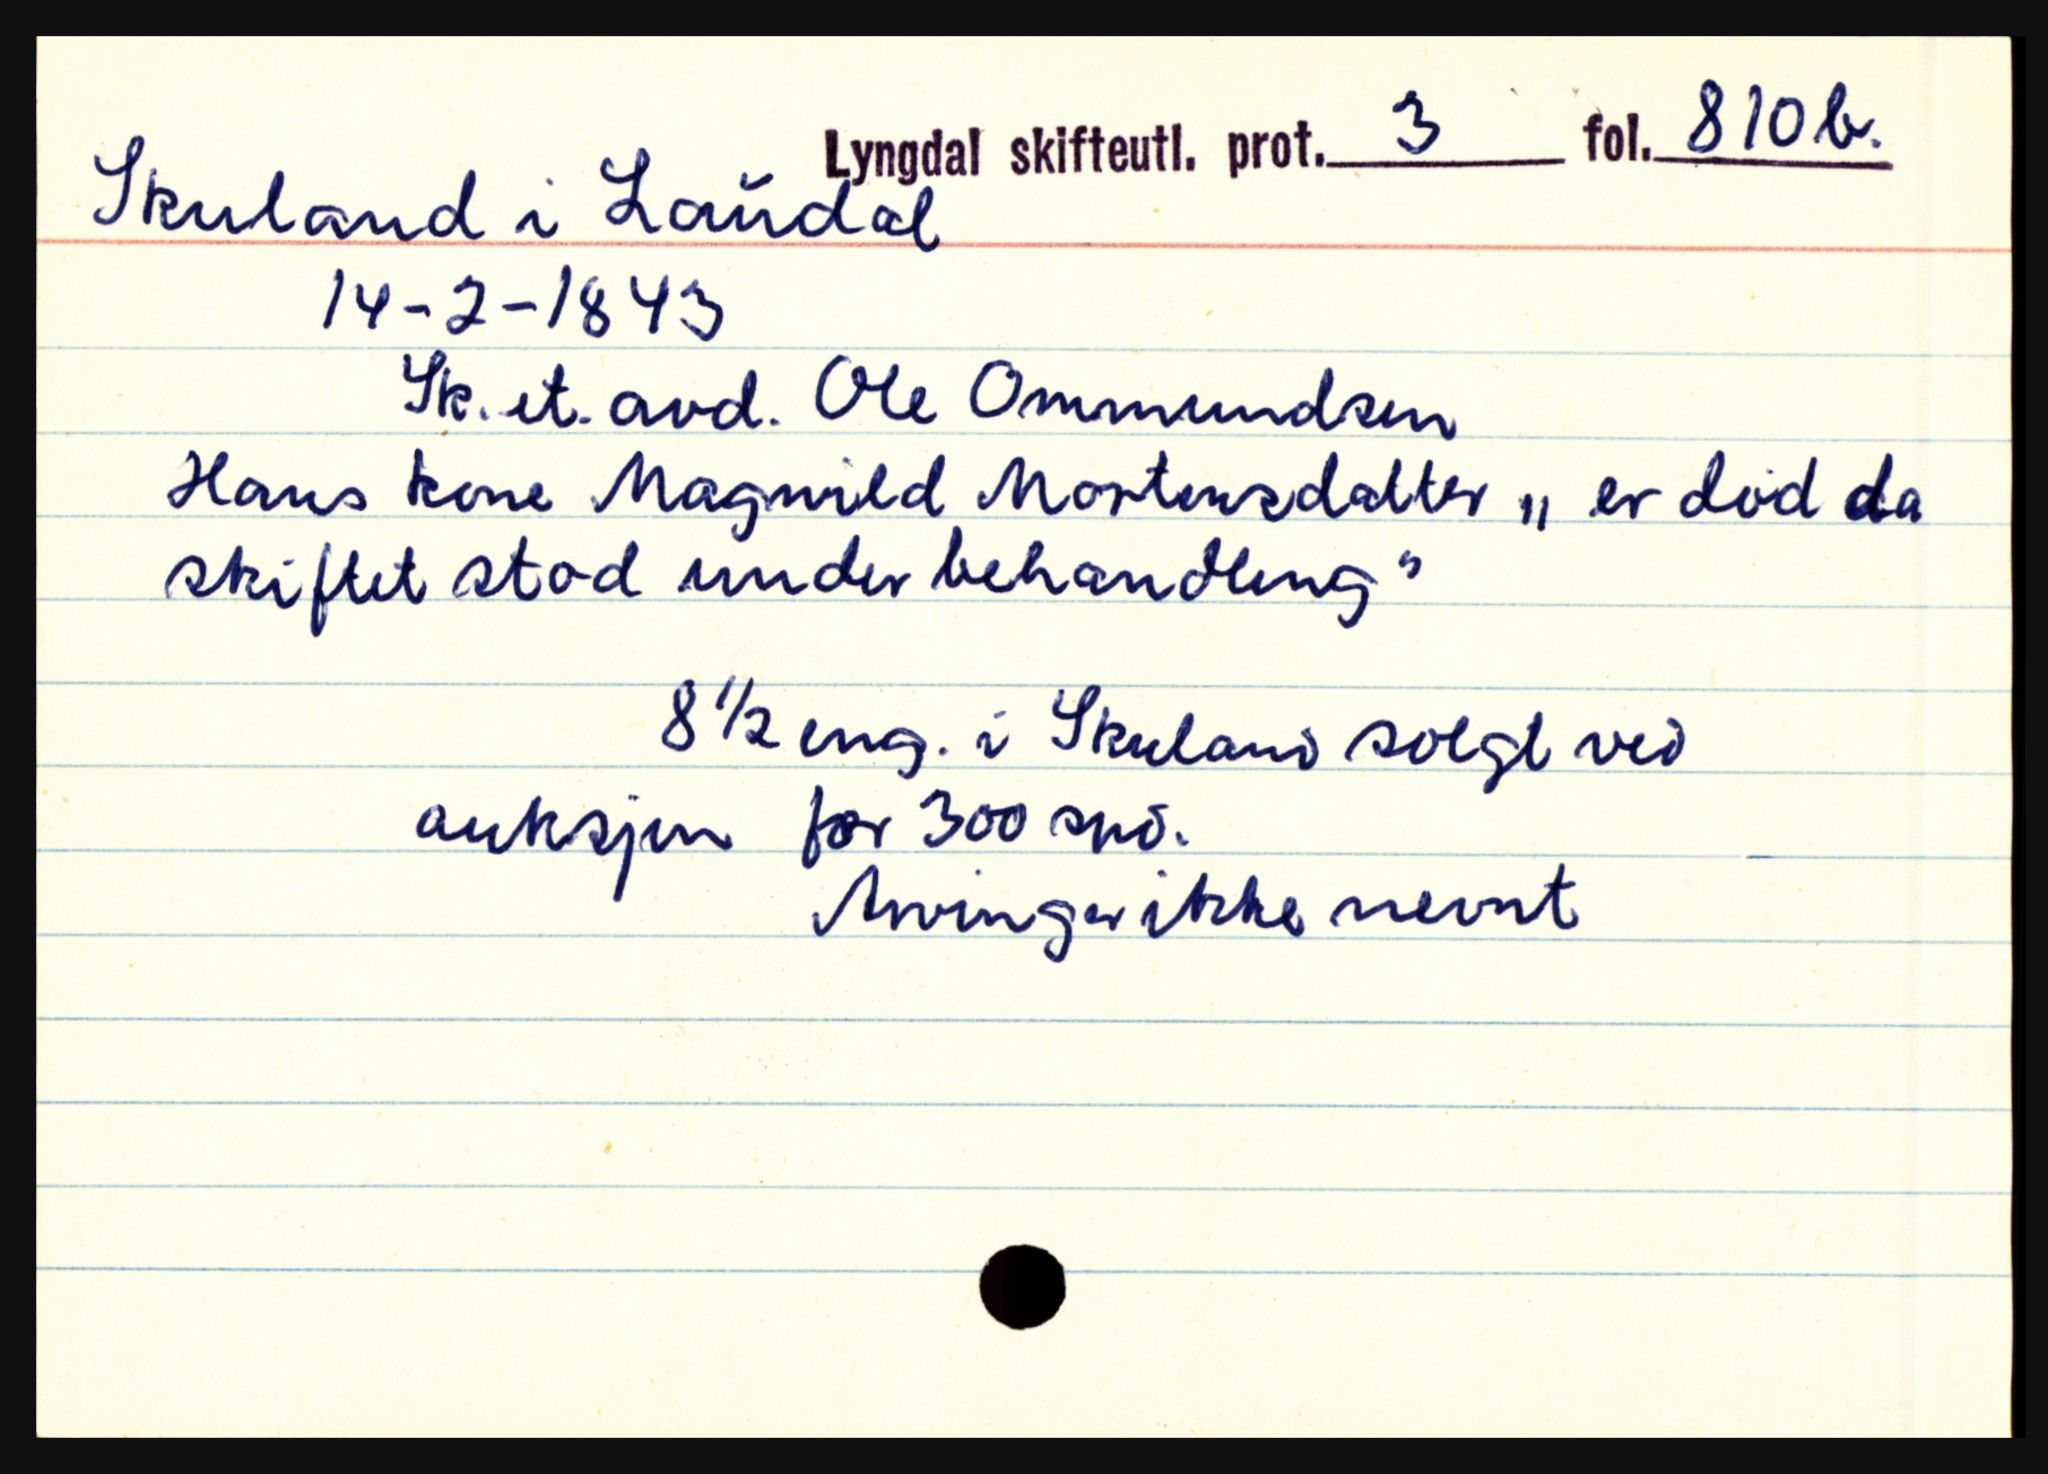 Lyngdal skifteutl. prot. 3 fol. 810b.
Skuland i Laudal
14-2-1843
Sk. et. avd. Ole Ommundsen
Hans kone Magnild Mortensdatter „ er død da
skiftet stod under behandling"
8 1/2 eng. i Skuland solgt ved
auksjon for 300 spd.
Arvinger ikke nevnt